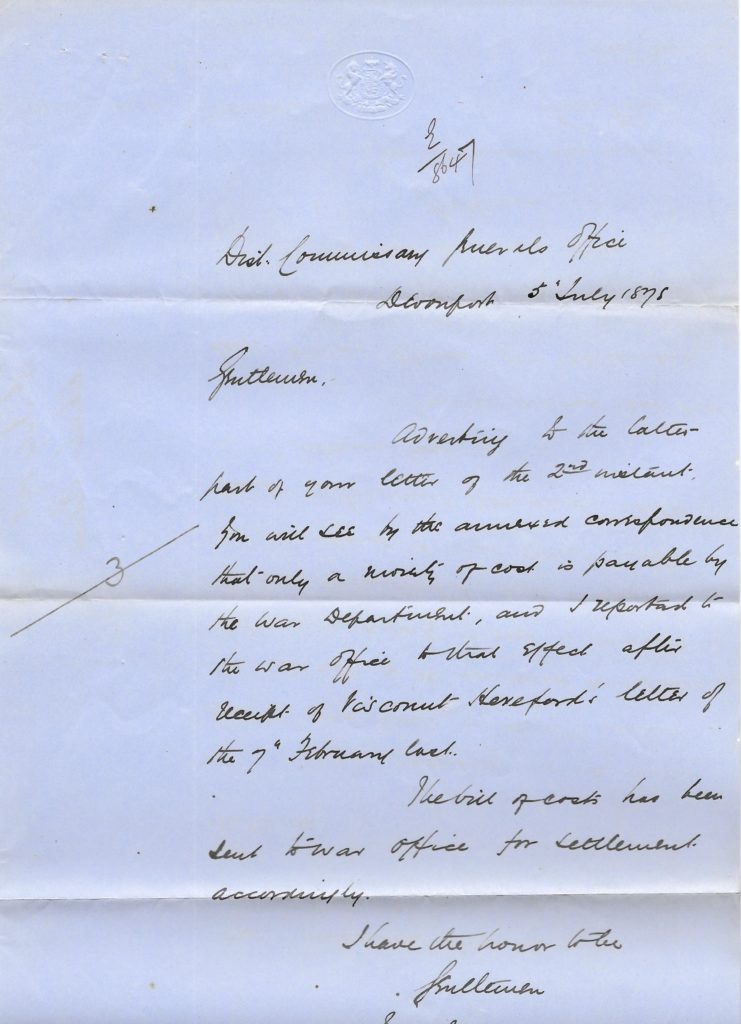 E/864
Dist. Commissary Generals Office
Devonport 5" July 1878
Gentlemen,
Adverting to the latter
part of your letter of the 2nd instant.
You will see by the annexed correspondence
that only a moiety of cost is payable by
the War Department, and I reported to
the War Office to that effect after
receipt of Viscount Hereford's letter of
the 7" February last.
The bill of costs has been
sent to War Office for settlement
accordingly.
I have the honor to be
Gentlemen
3